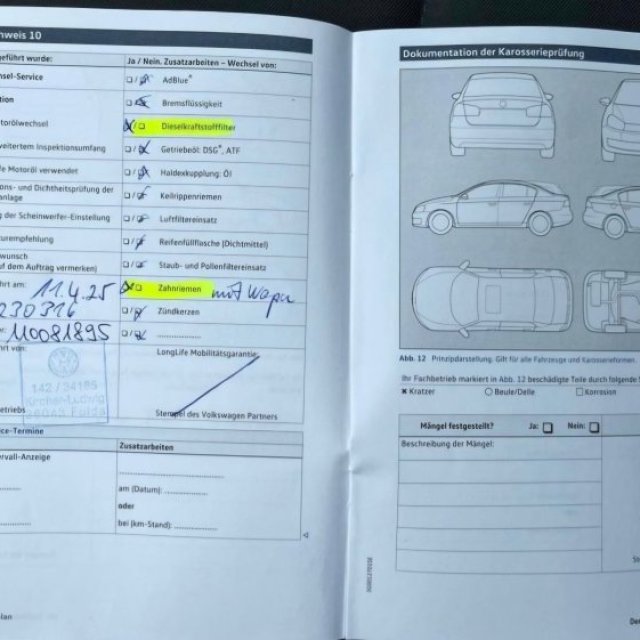 nweis 10
geführt wurde:
Ja / Nein. Zusatzarbeiten – Wechsel von:
sel-Service
AdBlue®
tion
Bremsflüssigkeit
otorölwechsel
Dieselkraftstofffilter
weitertem Inspektionsumfang
Getriebeöl: DSG®, ATF
fe Motoröl verwendet
Haldexkupplung: Öl
ons- und Dichtheitsprüfung der
anlage
Keilrippenriemen
g der Scheinwerfer-Einstellung
Luftfiltereinsatz
urempfehlung
Reifenfüllflasche (Dichtmittel)
wunsch
uf dem Auftrag vermerken)
Staub- und Pollenfiltereinsatz
hrt am: 11.4.25
Zahnriemen mit Wapu
230316
Zündkerzen
110081895
rt von:
LongLife Mobilitätsgarantie
142 / 34185
36043 Fulda
etriebs
Stempel des Volkswagen Partners
ce-Termine
Zusatzarbeiten
ervall-Anzeige
am (Datum):
oder
bei (km-Stand):
lan
Dokumentation der Karosserieprüfung
Abb. 12 Prinzipdarstellung. Gilt für alle Fahrzeuge und Karosserieformen.
Ihr Fachbetrieb markiert in Abb. 12 beschädigte Teile durch folgende
Kratzer
Beule/Delle
Korrosion
Mängel festgestellt? Ja: Nein:
Beschreibung der Mängel: